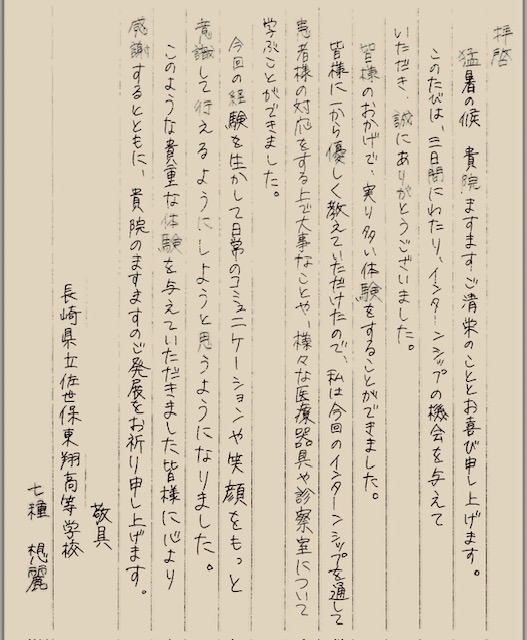 拝啓
猛暑の候 貴院ますますご清栄のこととお喜び申し上げます。
このたびは、三日間にわたり、インターンシップの機会を与えて
いただき、誠にありがとうございました。
皆様のおかげで、実り多い体験をすることができました。
皆様に一から優しく教えていただけたので、私は今回のインターンシップを通して
患者様の対応をする上で大事なことや、様々な医療器具や診察室について
学ぶことができました。
今回の経験を生かして日常のコミュニケーションや笑顔をもっと
意識して行えるようにしようと思うようになりました。
このような貴重な体験を与えていただきました皆様に心より
感謝するとともに、貴院のますますのご発展をお祈り申し上げます。
敬具
長崎県立佐世保東翔高等学校
七種 想麗